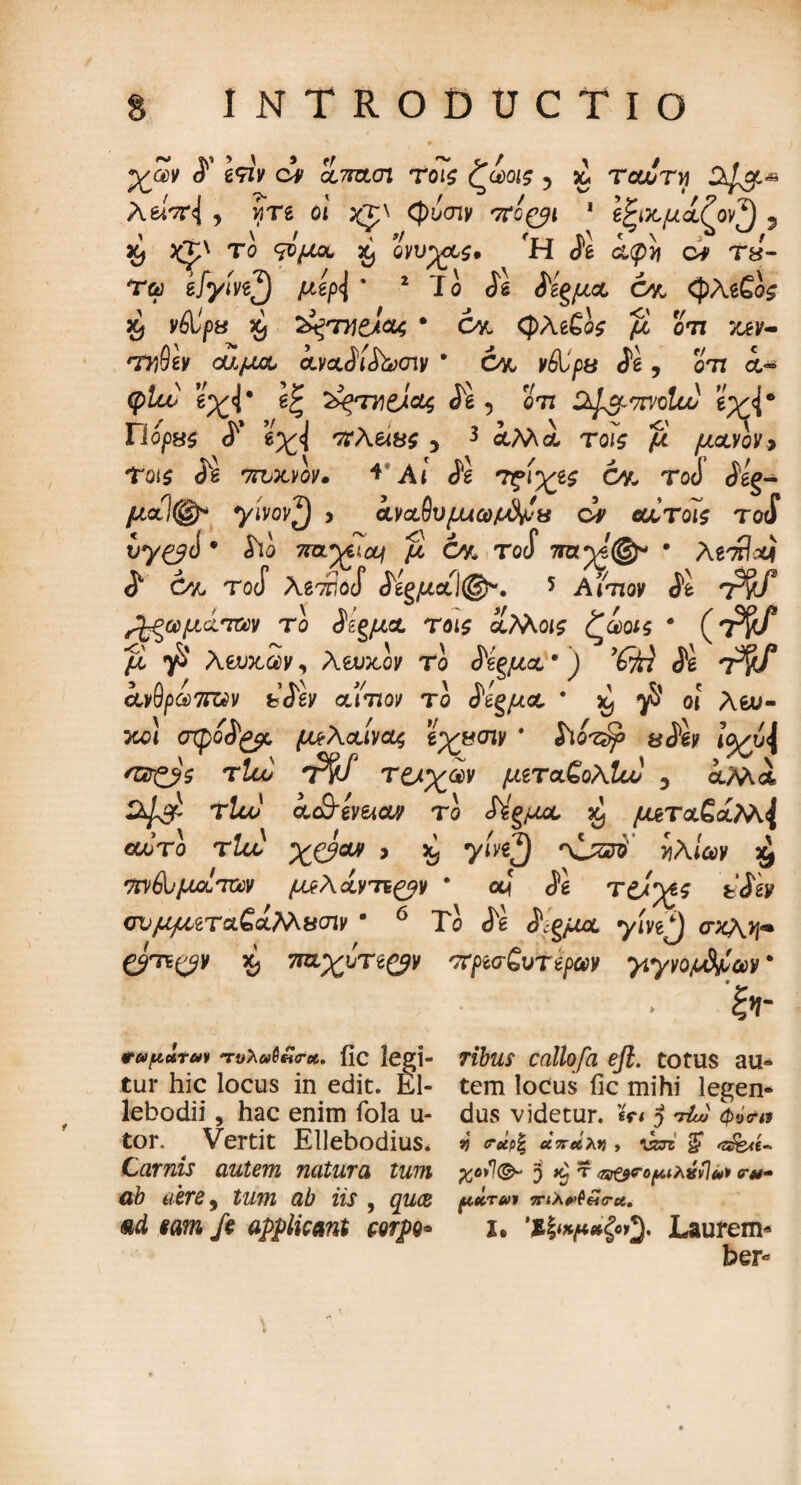 8 INTRODUCTIO
χῶν δ' ἐςὶν ἐν ἅπασι τοῖς ζώοις, καὶ ταύτῃ δια-
λείπει, ᾗτε οἱ κατὰ φύσιν πόροι ¹ ἐξικμάζονται,
καὶ κατὰ τὸ ςόμα καὶ ὄνυχας. Ἡ δὲ ἁφὴ ἐν τού-
τῳ ἐγγίνεται μέρει· ² Τὸ δὲ δέρμα ἐκ φλεβὸς
καὶ νεύρου καὶ ἀρτηρίας· ἐκ φλεβὸς μὲν ὅτι κεν-
τηθὲν αἷμα ἀναδίδωσιν· ἐκ νεύρου δὲ, ὅτι ἁ-
φὴν ἔχει· ἐξ ἀρτηρίας δὲ, ὅτι διαπνοὴν ἔχει·
Πόρους δ' ἔχει πλείους, ³ ἀλλὰ τοῖς μὲν μανὸν,
τοῖς δὲ πυκνόν. ⁴ Αἱ δὲ τρίχες ἐκ τοῦ δέρ-
ματος γίνονται, ἀναθυμιωμένου ἐν αὐτοῖς τοῦ
ὑγροῦ· διὸ παχεῖαι μὲν ἐκ τοῦ παχέος· λεπταὶ
δ' ἐκ τοῦ λεπτοῦ δέρματος. ⁵ Αἴτιον δὲ τῶν
χρωμάτων τὸ δέρμα τοῖς ἄλλοις ζώοις· (τῶν
μὲν γὰρ λευκῶν, λευκὸν τὸ δέρμα·) Ἐπὶ δὲ τῶν
ἀνθρώπων οὐδὲν αἴτιον τὸ δέρμα· καὶ γὰρ οἱ λευ-
κοὶ σφόδρα μελαίνας ἔχουσιν· διόπερ οὐδὲν ἰσχύει
πρὸς τὴν τῶν τριχῶν μεταβολὴν, ἀλλὰ
διὰ τὴν ἀσθένειαν τὸ δέρμα καὶ μεταβάλλει
αὐτὸ τὴν χρόαν, καὶ γίνεται ὑπὸ ἡλίων καὶ
πνευμάτων μελάντερον· αἱ δὲ τρίχες οὐδὲν
συμμεταβάλλουσιν· ⁶ Τὸ δὲ δέρμα γίνεται σκλη-
ρότερον καὶ παχύτερον πρεσβυτέρων γιγνομένων·
ξη-
σωμάτων τυλωθεῖσα. sic legi-
tur hic locus in edit. El-
lebodii, hac enim sola u-
tor. Vertit Ellebodius.
Carnis autem natura tum
ab aere, tum ab iis, quæ
ad eam se applicant corpo-
ribus callosa est. totus au-
tem locus sic mihi legen-
dus videtur. ἔςι δὲ τὴν φύσιν
ἡ σὰρξ ἁπαλὴ, ὑπὸ δὲ περιέ-
χοντος δὲ καὶ τῶν προσομιλούντων σω-
μάτων πιλωθεῖσα.
1. Ἐξικμάζονται. Laurem-
ber-